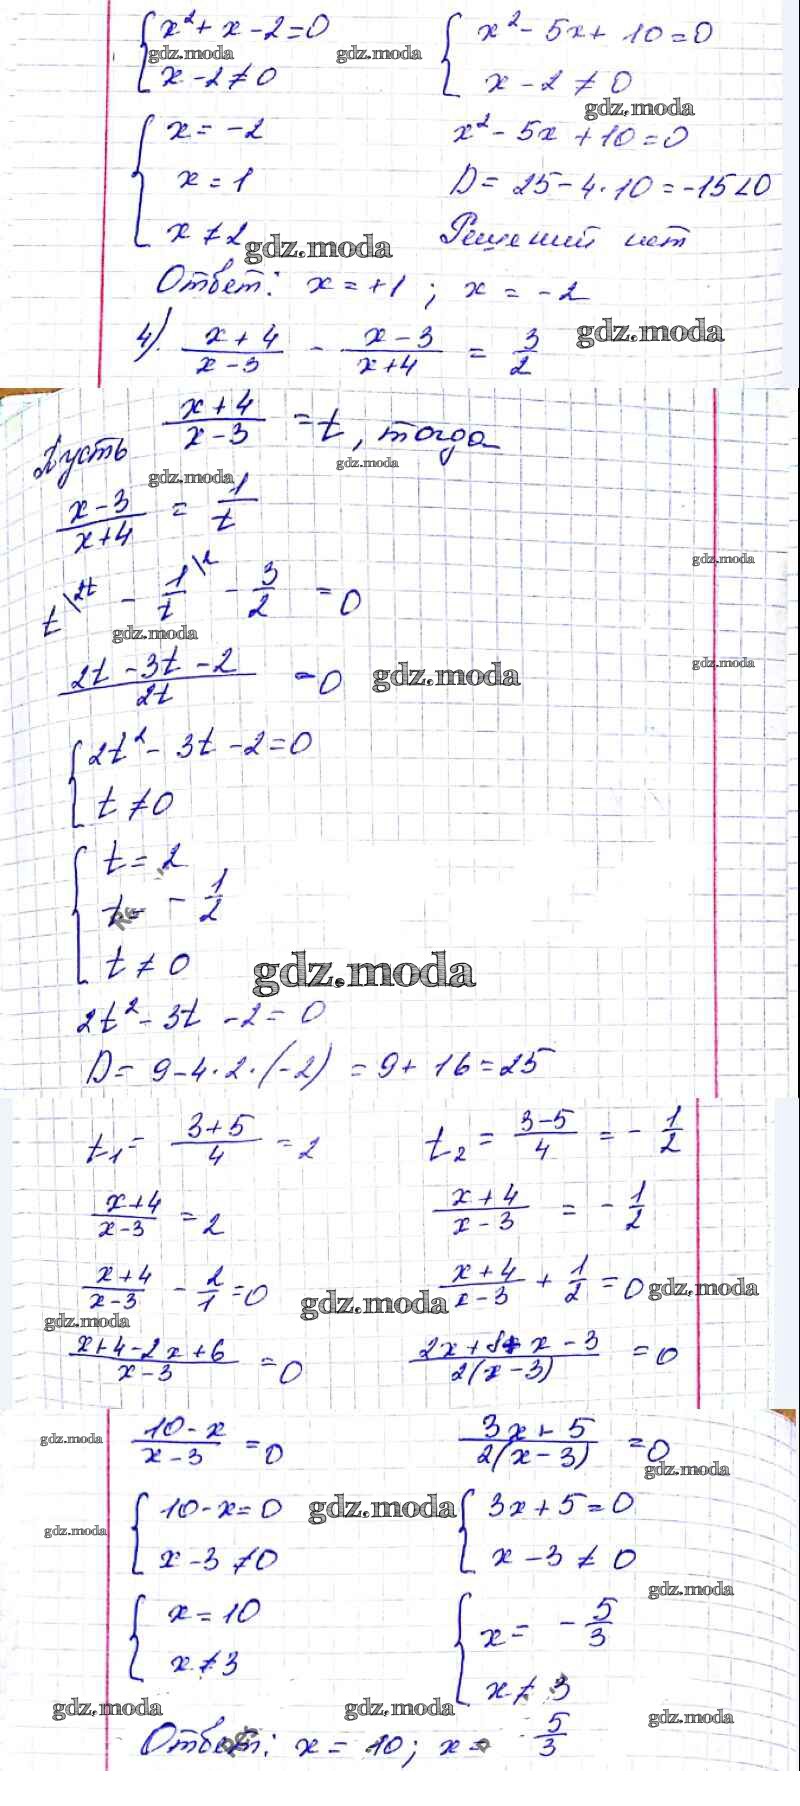 x² + x - 2 = 0    x² - 5x + 10 = 0
gdz.moda    gdz.moda
x - 2 ≠ 0    x - 2 ≠ 0
gdz.moda
x = -2    x² - 5x + 10 = 0
x = 1    D = 25 - 4·10 = -15 < 0
x ≠ 2    Решений нет
gdz.moda
Ответ: x = +1 ; x = -2
4). (x+4)/(x-3) - (x-3)/(x+4) = 3/2    gdz.moda
Пусть (x+4)/(x-3) = t, тогда
gdz.moda    gdz.moda
(x-3)/(x+4) = 1/t
gdz.moda
t\2t - 1/t\2 - 3/2 = 0
gdz.moda
(2t - 3t - 2)/2t = 0    gdz.moda    gdz.moda
2t² - 3t - 2 = 0
t ≠ 0
t = 2
t = -1/2
t ≠ 0    gdz.moda
2t² - 3t - 2 = 0
D = 9 - 4·2·(-2) = 9 + 16 = 25
t₁ = (3+5)/4 = 2    t₂ = (3-5)/4 = -1/2
(x+4)/(x-3) = 2    (x+4)/(x-3) = -1/2
(x+4)/(x-3) - 2/1 = 0    (x+4)/(x-3) + 1/2 = 0
gdz.moda    gdz.moda    gdz.moda
(x+4-2x+6)/(x-3) = 0    (2x+8+x-3)/2(x-3) = 0
(10-x)/(x-3) = 0    (3x+5)/2(x-3) = 0
gdz.moda    gdz.moda
10 - x = 0    gdz.moda    3x + 5 = 0
gdz.moda
x - 3 ≠ 0    x - 3 ≠ 0
gdz.moda
x = 10    x = -5/3
x ≠ 3    x ≠ 3
gdz.moda    gdz.moda    gdz.moda
Ответ: x = 10; x = -5/3